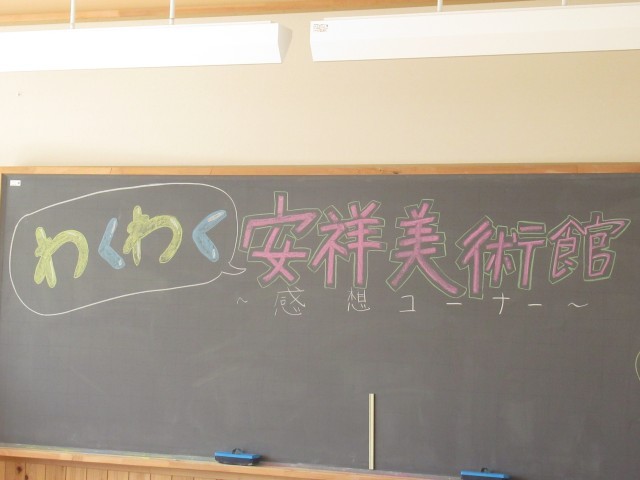 わくわく安祥美術館
~感想コーナー~